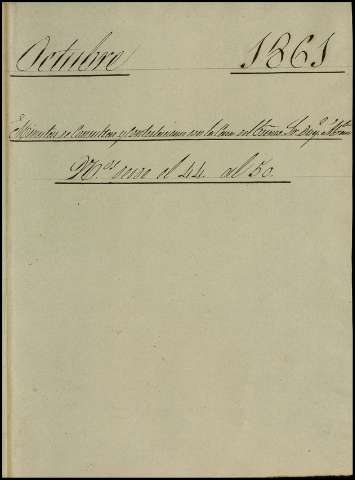 Octubre 1861
Minutas de Consultas y contestaciones con la Casa del Excmo. Sor. Duq.e
N.os desde el 44. al 50.